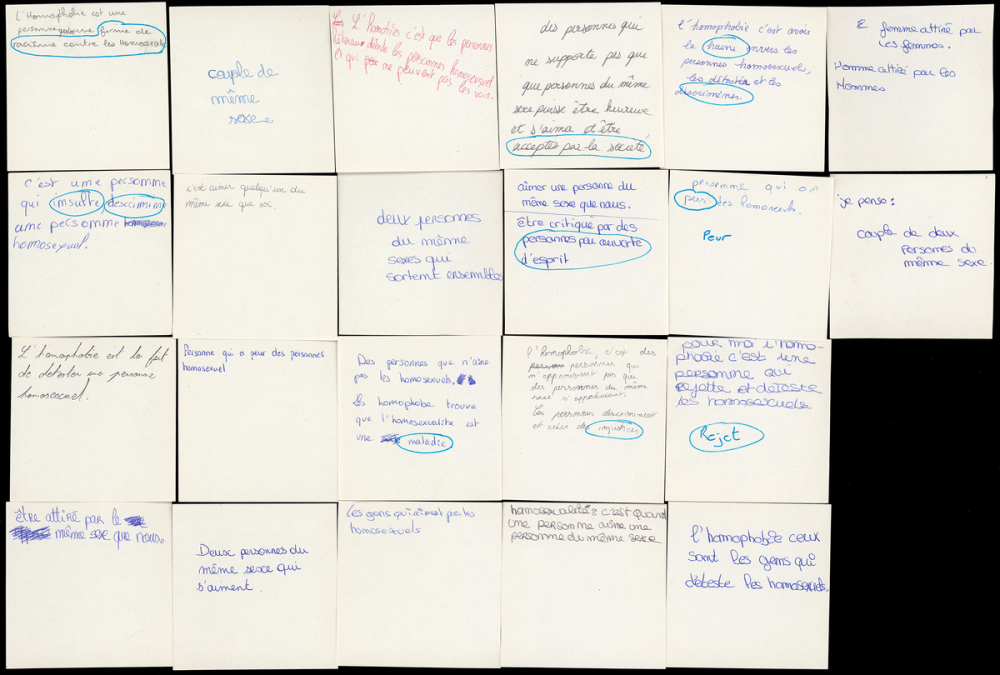 L'Homophobie est une
personne forme de
racisme contre les Homosexuels
couple de
même
sexe
L'homofies c'est que les personnes
déteste les personnes homosexuel
et qui ne peuvent pas les voir.
des personnes qui
ne supporte pas que
que personnes du même
sexe puisse être heureuse
et s'aima d'être
acceptés par la société
l'homophobie c'est avoir
la haine envers les
personnes homosexuels,
les détester et les
discriminer.
2 femme attiré par
les femmes.
Homme attiré par les
Hommes
c'est une personne
qui insulte descimine
une personne
homosexuel.
c'est aimer quelqu'un du
même sexe que soi.
deux personnes
du même
sexes qui
sortent ensembles
aimer une personne du
même sexe que nous.
être critiqué par des
personnes peu ouverte
d'esprit
personne qui on
peur des homosexuels.
Peur
je pense :
couple de deux
personnes du
même sexe.
L'homophobie est le fait
de detester une personne
homosexuel.
Personne qui a peur des personnes
homosexuel
Des personnes que n'aime
pas les homosexuels.
les homophobe trouve
que l'homosexualité est
une maladie
l'homophobie, c'est des
personnes qui
n'apprécient pas que
des personnes du même
sexe s'apprécient
Ces personnes discriminent
et crée des injustices
pour moi l'homo-
phobie c'est une
personne qui
rejette et déteste
les homosexuels
Rejet
être attiré par le
même sexe que nous.
Deux personnes du
même sexe qui
s'aiment.
Les gens qui aiment pas les
homosexuels
homosexualité : c'est quand
une personne aime une
personne du même sexe
l'homophobie ceux
sont les gens qui
déteste les homosexuels.